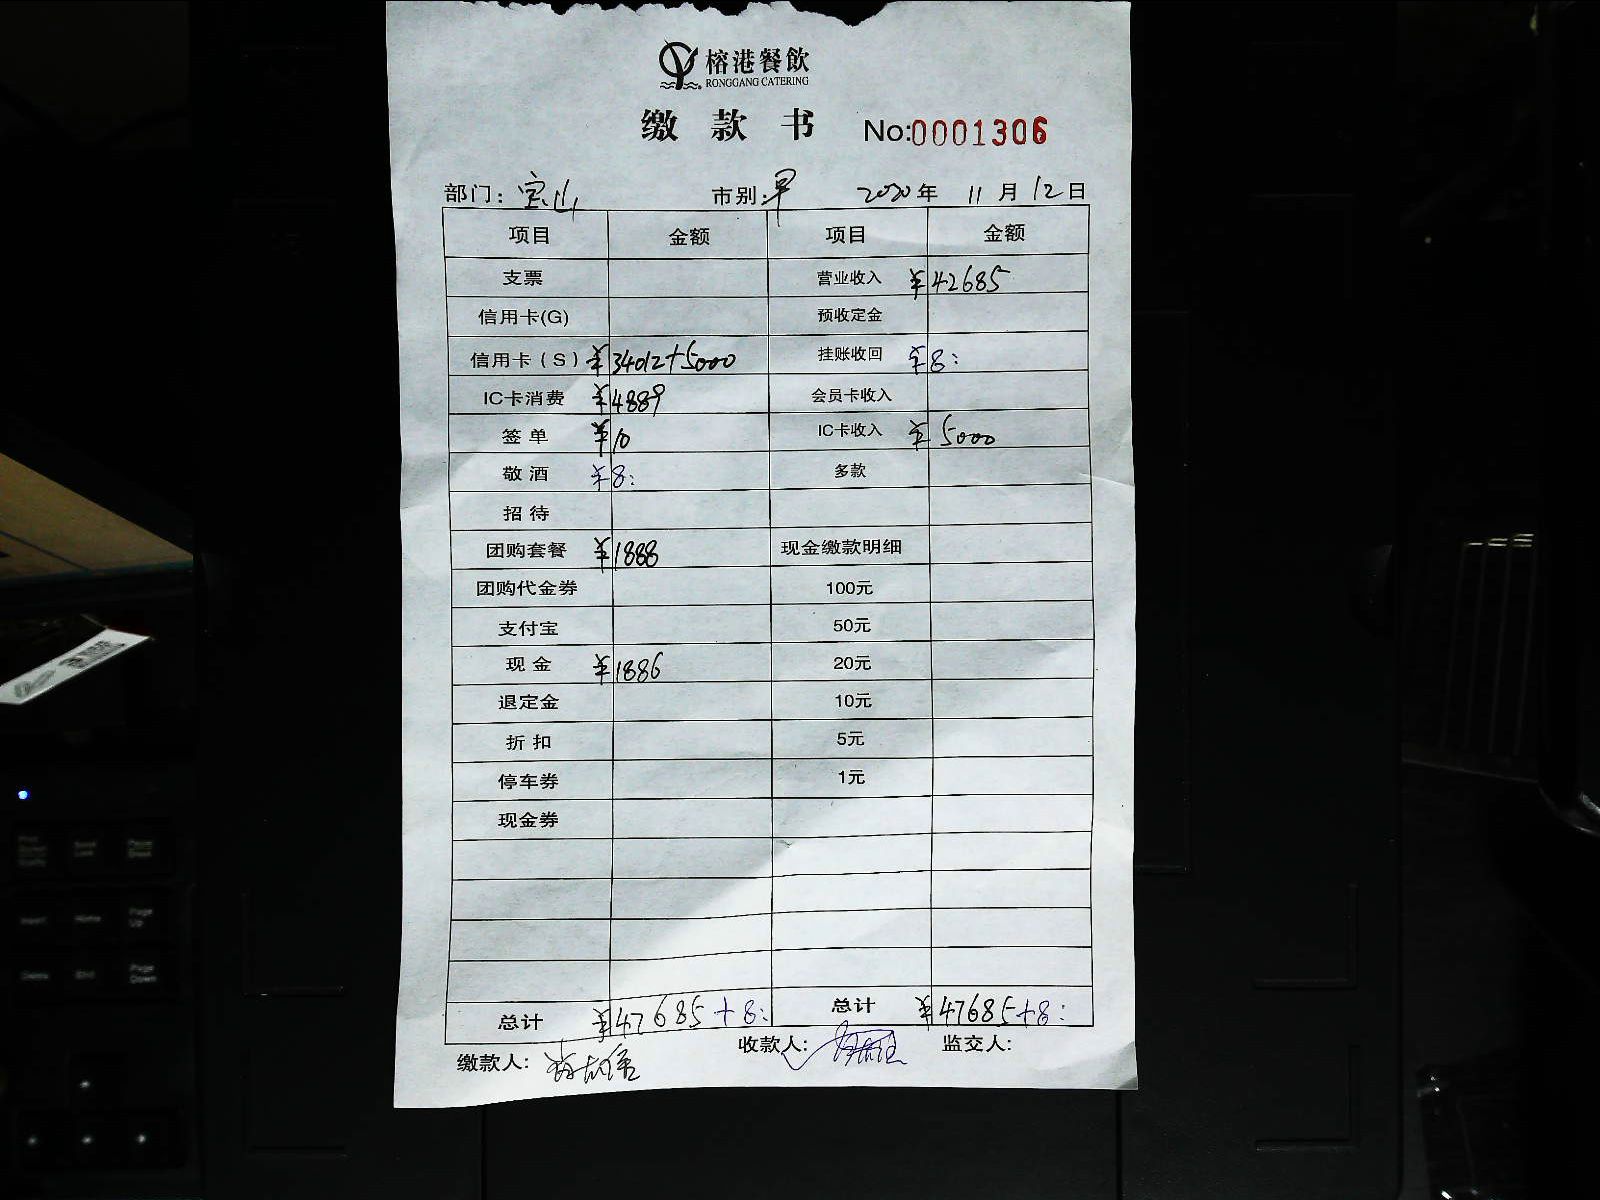 榕港餐飲
RONGGANG CATERING
缴 款 书 No:0001306
部门: 宝山 市别: 早 2020年 11月12日
项目 金额 项目 金额
支票 营业收入 ¥42685
信用卡(G) 预收定金
信用卡(S) ¥34012+5000 挂账收回 ¥8:
IC卡消费 ¥4889 会员卡收入
签单 ¥10 IC卡收入 ¥5000
敬酒 ¥8: 多款
招待
团购套餐 ¥1888 现金缴款明细
团购代金券 100元
支付宝 50元
现金 ¥1886 20元
退定金 10元
折扣 5元
停车券 1元
现金券
总计 ¥47685+8: 总计 ¥47685+8:
缴款人: 收款人: 监交人: